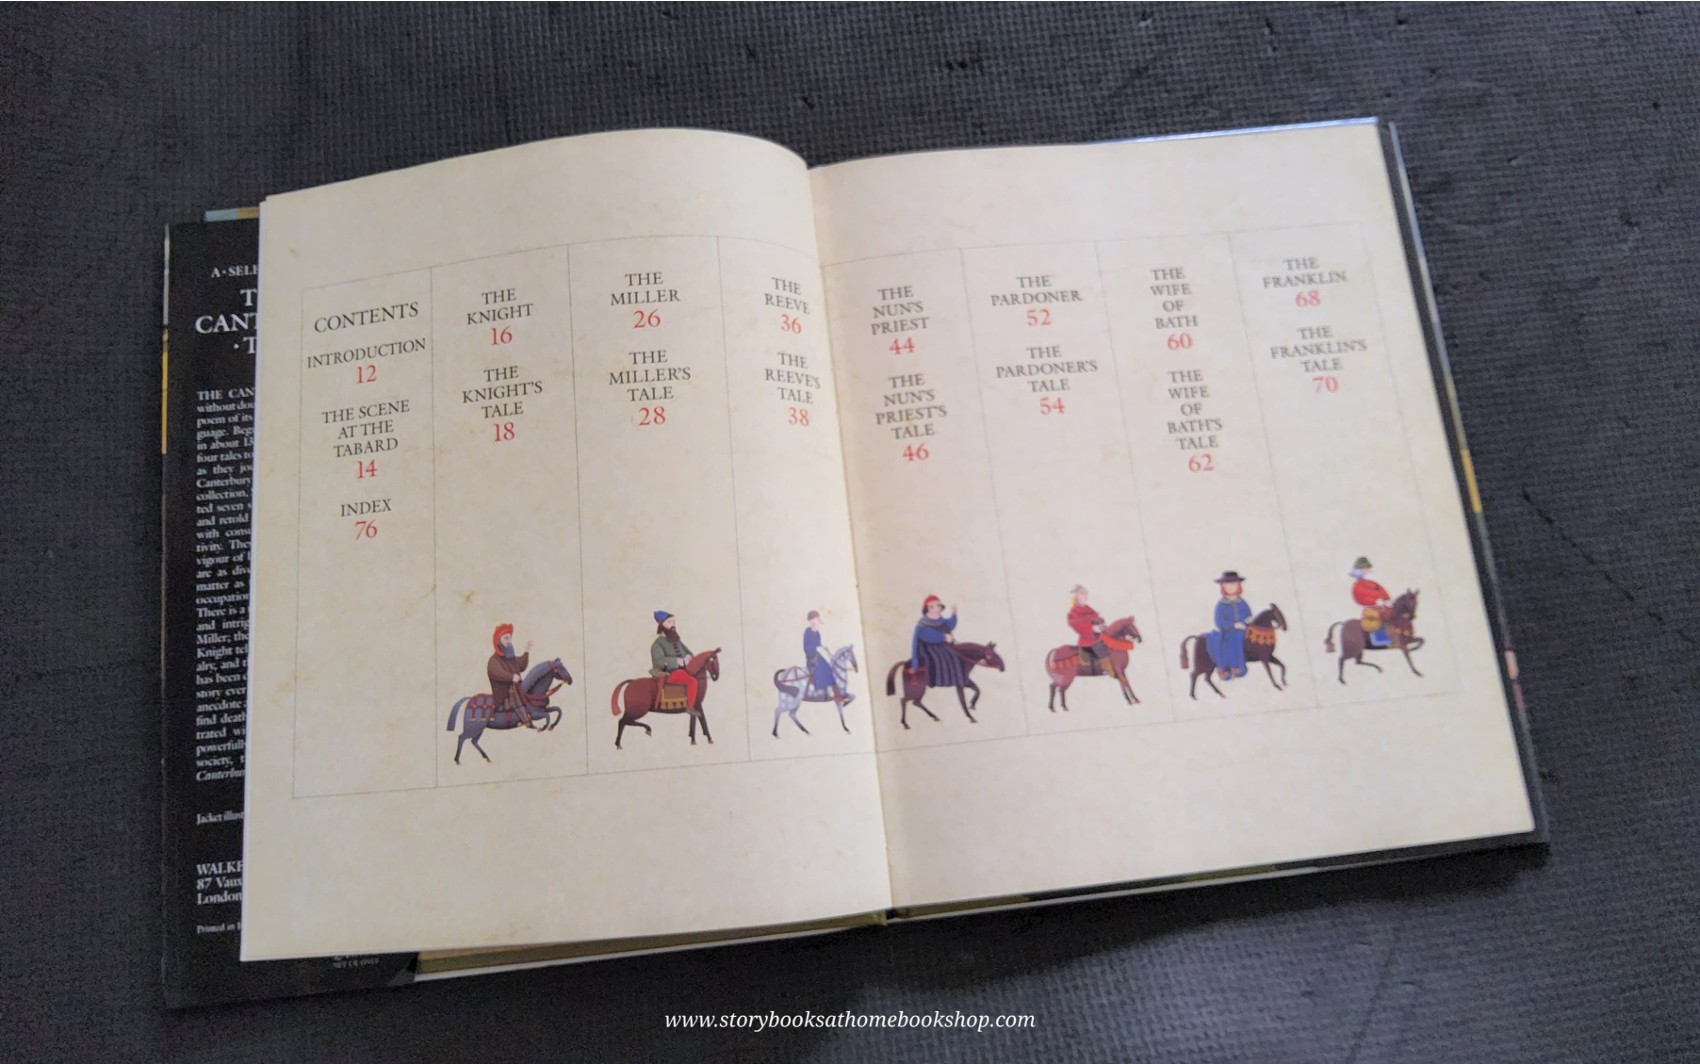 A·SELE
CANT
THE CAN
without dou
poem of its
guage. Beg
in about 13
four tales to
as they jo
Canterbury
collection,
ted seven
and retold
with cons
tivity. The
vigour of
are as dive
matter as
occupation
There is a
and intrig
Miller; the
Knight tel
alry, and t
has been
story ever
anecdote
find death
trated wi
powerfully
society, t
Canterbur
Jacket illust
WALKE
87 Vaux
London
Printed in I
CONTENTS
INTRODUCTION
12
THE SCENE
AT THE
TABARD
14
INDEX
76
THE
KNIGHT
16
THE
KNIGHT'S
TALE
18
THE
MILLER
26
THE
MILLER'S
TALE
28
THE
REEVE
36
THE
REEVE'S
TALE
38
THE
NUN'S
PRIEST
44
THE
NUN'S
PRIEST'S
TALE
46
THE
PARDONER
52
THE
PARDONER'S
TALE
54
THE
WIFE
OF
BATH
60
THE
WIFE
OF
BATH'S
TALE
62
THE
FRANKLIN
68
THE
FRANKLIN'S
TALE
70
www.storybooksathomebookshop.com